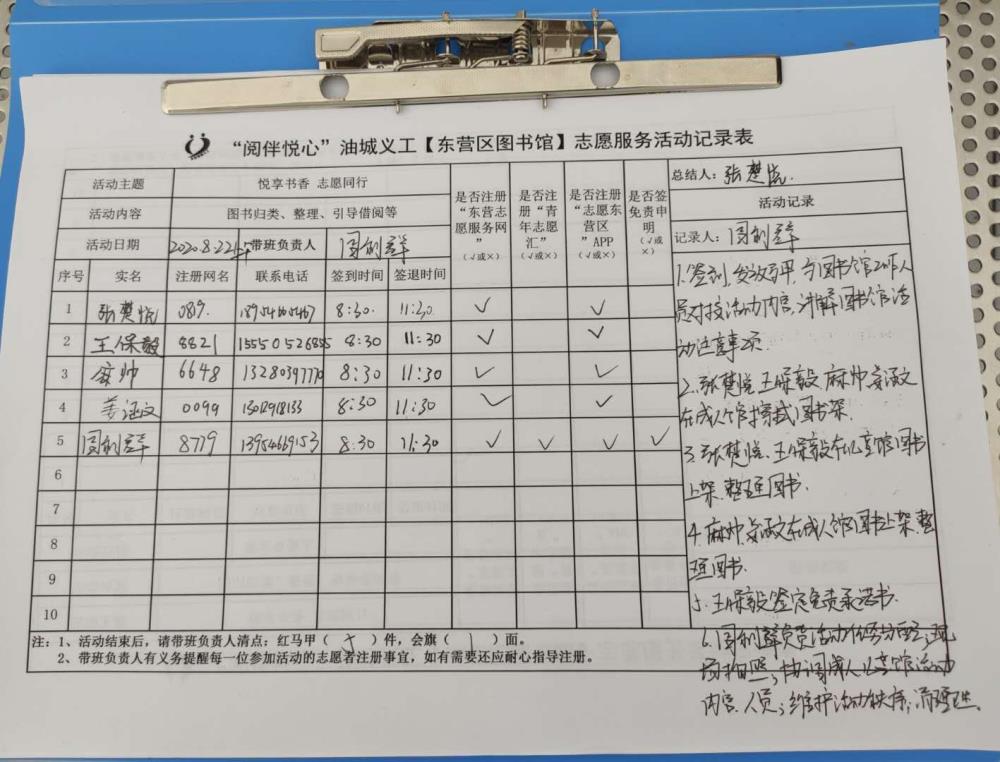 “阅伴悦心”油城义工【东营区图书馆】志愿服务活动记录表
活动主题 悦享书香 志愿同行
活动内容 图书归类、整理、引导借阅等
活动日期 2020.8.22上午 带班负责人 周利群
是否注册“东营志愿服务网”（√或×）
是否注册“青年志愿汇”（√或×）
是否注册“志愿东营区”APP（√或×）
是否签免责申明（√或×）
总结人：张楚悦.
活动记录
记录人：周利群
序号 实名 注册网名 联系电话 签到时间 签退时间
1 张楚悦 089. 8:30. 11:30 √ √
2 王保毅 8821 15550526855 8:30 11:30 √ √
3 麻帅 6648 13280397770 8:30 11:30 √ √
4 姜涵文 0099 13012918133 8:30 11:30 √ √
5 周利群 8779 13954669153 8:30 11:30 √ √ √ √
6
7
8
9
10
1.签到,发放马甲,与图书馆工作人
员对接活动内容,讲解图书馆活
动注意事项.
2.张楚悦、王保毅、麻帅、姜涵文
在成人馆擦拭图书架.
3.张楚悦、王保毅在儿童馆图书
上架、整理图书.
4.麻帅、姜涵文在成人馆图书上架、整
理图书.
5.王保毅签定免责承诺书.
6.周利群负责活动任务分配;现
场拍照;协调成人儿童馆活动
内容、人员;维护活动秩序;
注：1、活动结束后，请带班负责人清点：红马甲（ ）件，会旗（ 1 ）面。
2、带班负责人有义务提醒每一位参加活动的志愿者注册事宜，如有需要还应耐心指导注册。